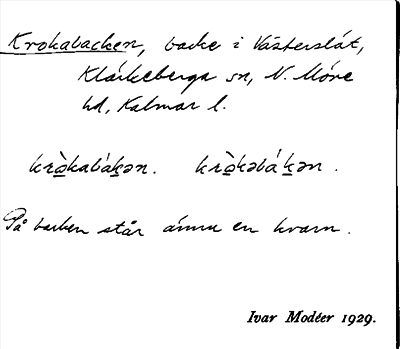 Krokabacken, backe i Västerslät,
Kläckeberga sn, N. Möre
hd, Kalmar l.
krò̲kabák̲ən. krò̲kəbák̲ən.
På backen står ännu en kvarn.
Ivar Modéer 1929.